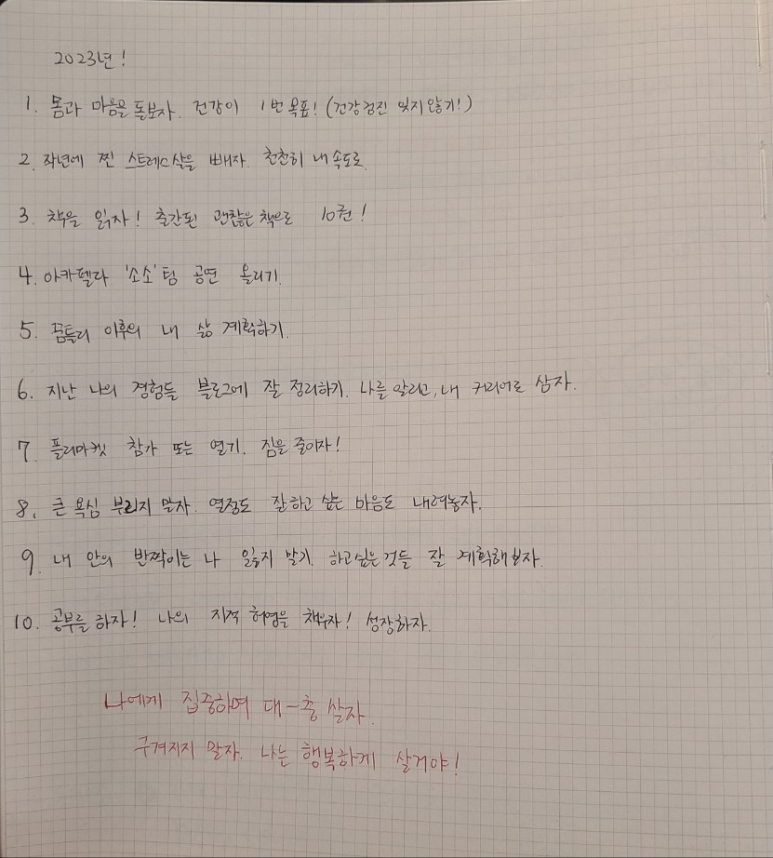 2023년!
1. 몸과 마음을 돌보자. 건강이 1번 목표! (건강검진 잊지않기!)
2. 작년에 찐 스트레스살을 빼자. 천천히 내 속도로.
3. 책을 읽자! 출간된 괜찮은 책으로 10권!
4. 아카펠라 '소소'팀 공연 올리기.
5. 꿈틀리 이후의 내 삶 계획하기.
6. 지난 나의 경험들 블로그에 잘 정리하기. 나를 알리고, 내 커리어로 삼자.
7. 플리마켓 참가 또는 열기. 짐을 줄이자!
8. 큰 욕심 부리지 말자. 열정도 잘하고 싶은 마음도 내려놓자.
9. 내 안의 반짝이는 나 잃지 말기. 하고싶은것들 잘 계획해보자.
10. 공부를 하자! 나의 지적 허영을 채우자! 성장하자.
나에게 집중하며 대-충 살자.
구겨지지 말자. 나는 행복하게 살거야!